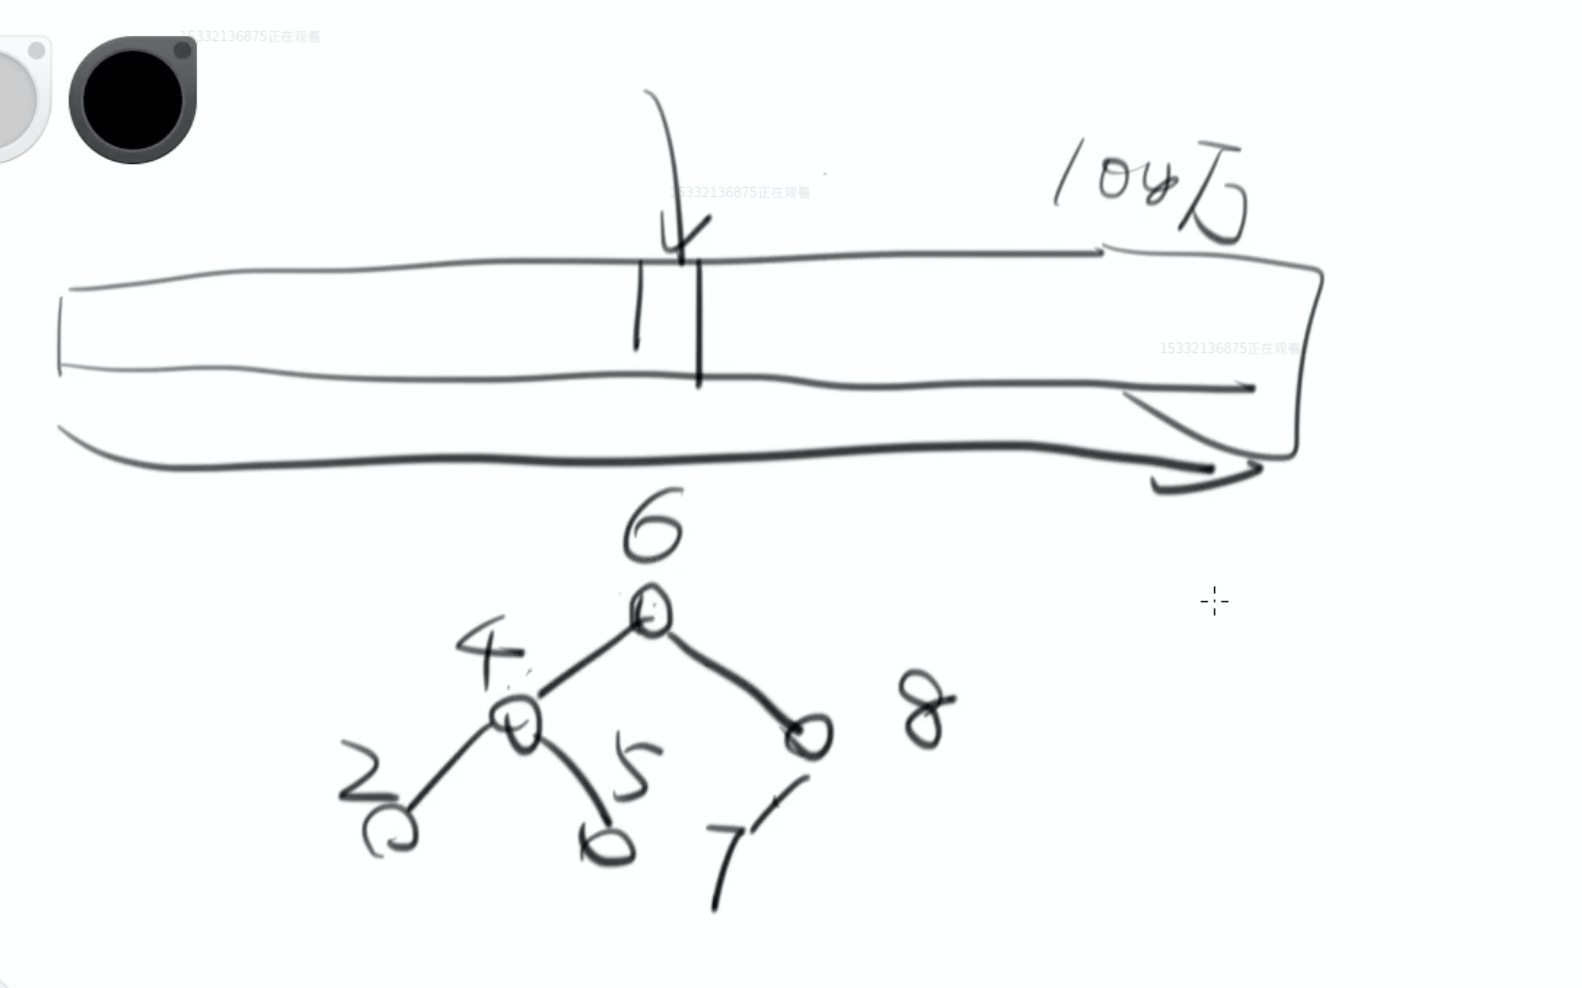 15332136875正在观看
15332136875正在观看
100万
15332136875正在观看
6
4
8
5
2
7